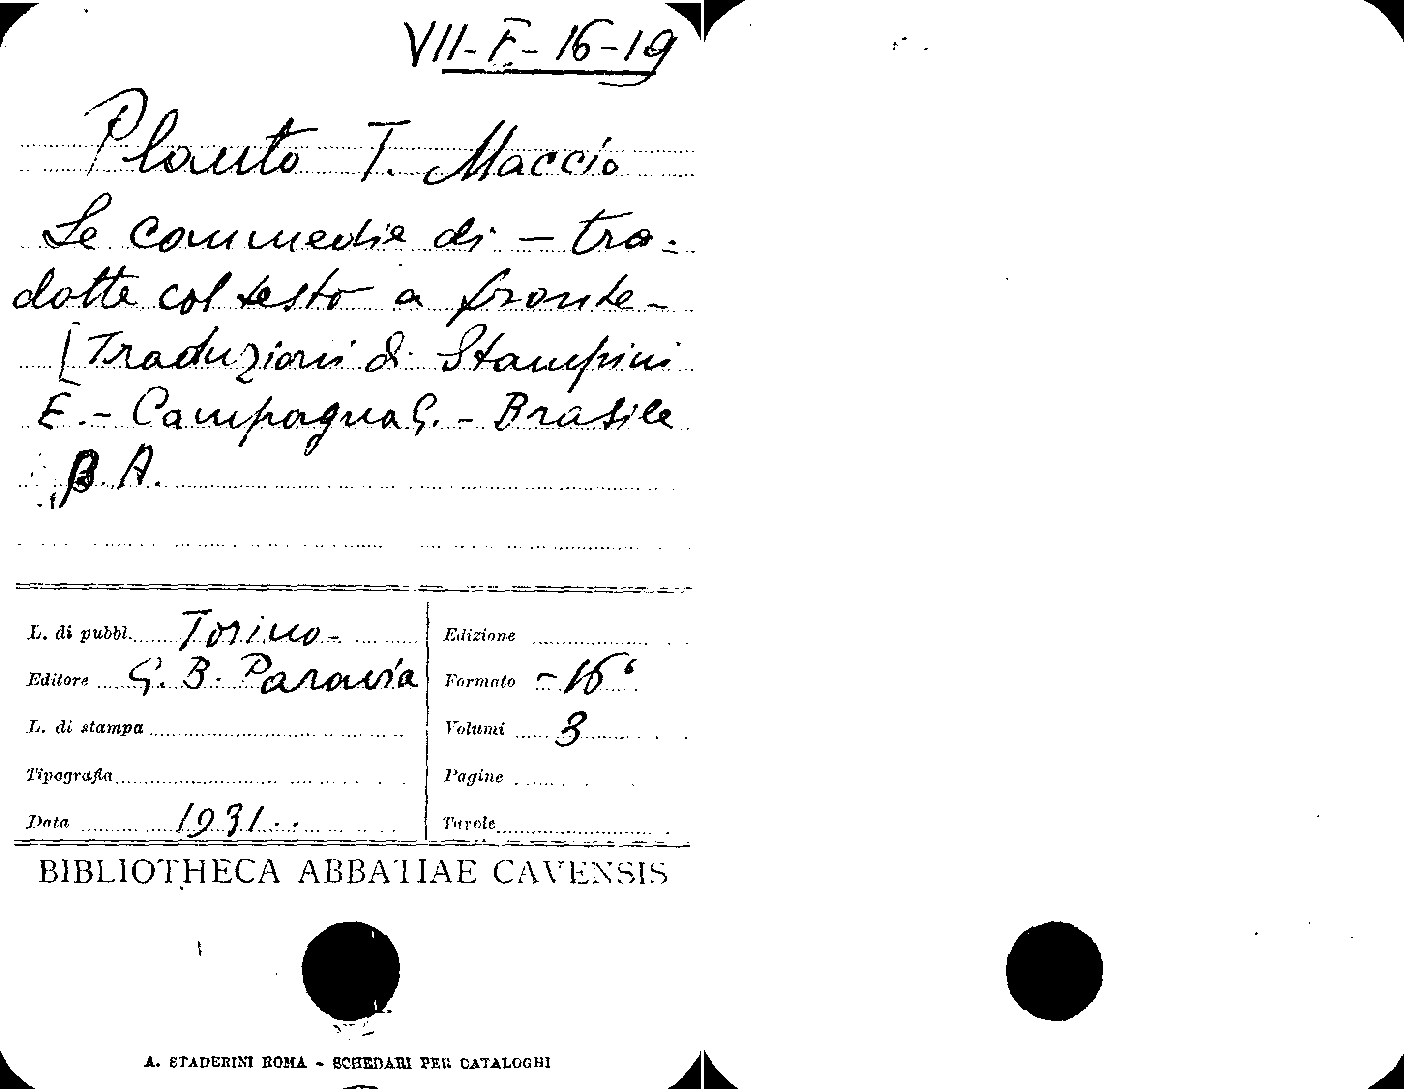 VII-F-16-19
Plauto T. Maccio
Le commedie di - tra-
dotte col testo a fronte -
[Traduzioni di Stampini
E. - Campagna G. - Brasile
B. A.
L. di pubbl. Torino -
Editore G. B. Paravia
L. di stampa
Tipografia
Data 1931..
Edizione
Formato -16°
Volumi 3
Pagine
Tavole
BIBLIOTHECA ABBATIAE CAVENSIS
A. STADERINI ROMA - SCHEDARI PER CATALOGHI